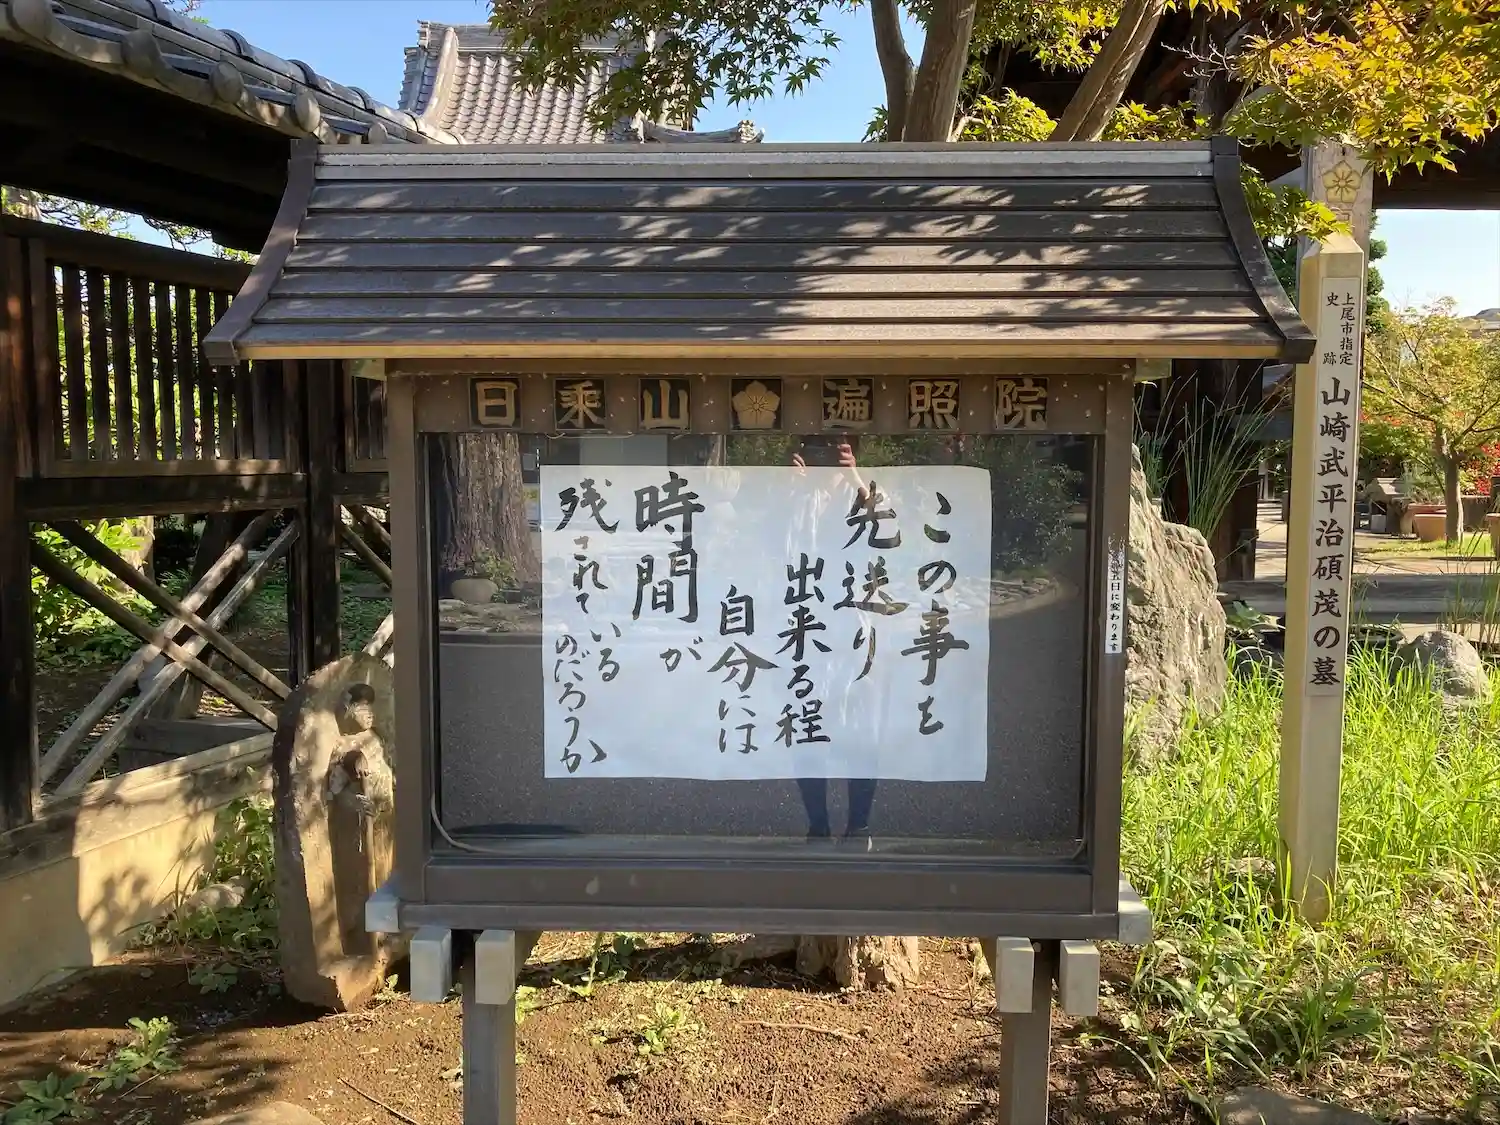 日乗山 遍照院
この事を
先送り
出来る程
自分には
時間が
残されている
のだろうか
五日に変わります
上尾市指定
史跡
山崎武平治碩茂の墓